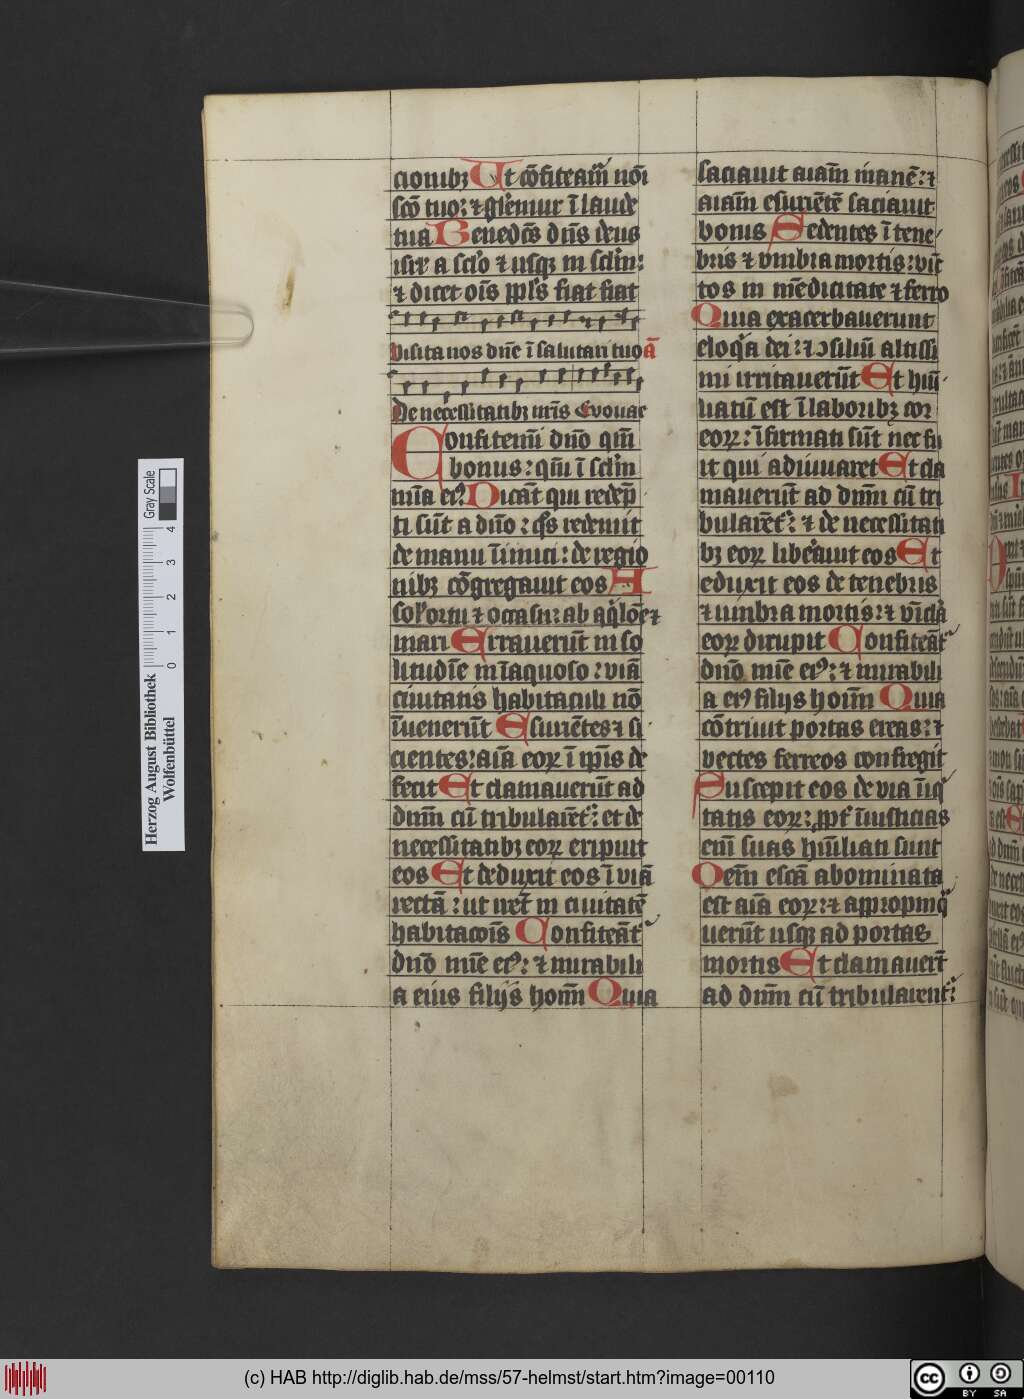 cionibꝫ Ut cōfiteam̄ nōi
scō tuo: ⁊ gl'emur ī laude
tua Benedcūs dn̄s deus
isrl' a sclo ⁊ usqꝫ in sclm̄:
⁊ dicet oīs ppl's fiat fiat
Visita nos dn̄e ī salutari tuo ā
De necessitatibꝫ nr̄is Evouae
Confitemī dn̄o qm̄
bonus: qm̄ ī sclm̄
mīa eiꝰ Dicāt qui redēp
ti sūt a dn̄o: q̄s redemit
de manu īimici: de regio
nibꝫ cōgregauit eos A
sol' ortu ⁊ occasu: ab aq̇lōe ⁊
mari Errauerūt in so
litudīe in īaquoso: uiā
ciuitatis habitaculi nō
īuenerūt Esuriētes ⁊ si
cientes: aīa eoꝝ ī ip̄is de
fecit Et clamauerūt ad
dnm̄ cū tribularēt': et de
necessitatibꝫ eoꝝ eripuit
eos Et deduxit eos ī uiā
rectā: ut irēt in ciuitatē
habitacōis Confiteāt'
dnō mīe eiꝰ: ⁊ mirabili
a eius filijs homī Quia
saciauit aīam inanē: ⁊
aīam esuriētē saciauit
bonis Sedentes ī tene
bris ⁊ vmbra mortis: vīc
tos in mēdicitate ⁊ ferro
Quia exacerbauerunt
eloq̇a dei: ⁊ ↄsiliū altissi
mi irritauerūt Et hūi
liatū est ī laboribꝫ cor
eoꝝ: īfirmati sūt nec fu
it qui adiuuaret Et cla
mauerūt ad dnm̄ cū tri
bularēt': ⁊ de necessitati
bꝫ eoꝝ lib'auit eos Et
eduxit eos de tenebris
⁊ umbra mortis: ⁊ vīcla
eoꝝ dirupit Confiteāt'
dn̄o mīe eiꝰ: ⁊ mirabili
a eiꝰ filijs homī Quia
cōtriuit portas ereas: ⁊
vectes ferreos confregit
Suscepit eos de via īiq̇
tatis eoꝝ: ꝓpt' īiusticias
enī suas hūiliati sunt
Oem̄ escā abominata
est aīa eoꝝ: ⁊ appropinq̇
uerūt usqꝫ ad portas
mortis Et clamauerūt
ad dnm̄ cū tribularent':
Herzog August Bibliothek
Wolfenbüttel
0 1 2 3 4
Gray Scale
(c) HAB http://diglib.hab.de/mss/57-helmst/start.htm?image=00110
cc BY SA